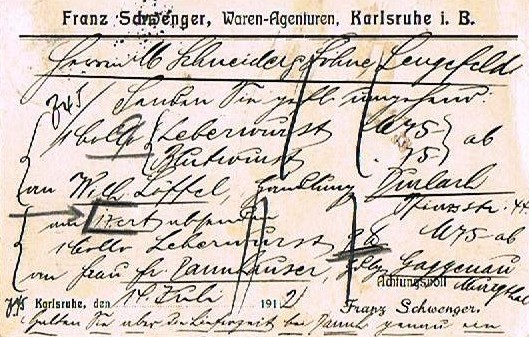 Franz Schwenger, Waren-Agenturen, Karlsruhe i. B.
Herren M Schneiders Söhne, Lengefeld
Senden Sie gefl. umgehend:
1 Collo Leberwurst M 75 ab
Blutwurst 75
an Wilh. Löffel, Handlung Durlach
Pfinzstr. 44
absenden
1 Collo Leberwurst 28 M 75 ab
an Frau Fr. Tannhäuser, Gaggenau
Murgthal
Achtungsvoll
Karlsruhe, den 14 Juli 1912
Franz Schwenger.
Halten Sie aber die Lieferzeit bei genau ein